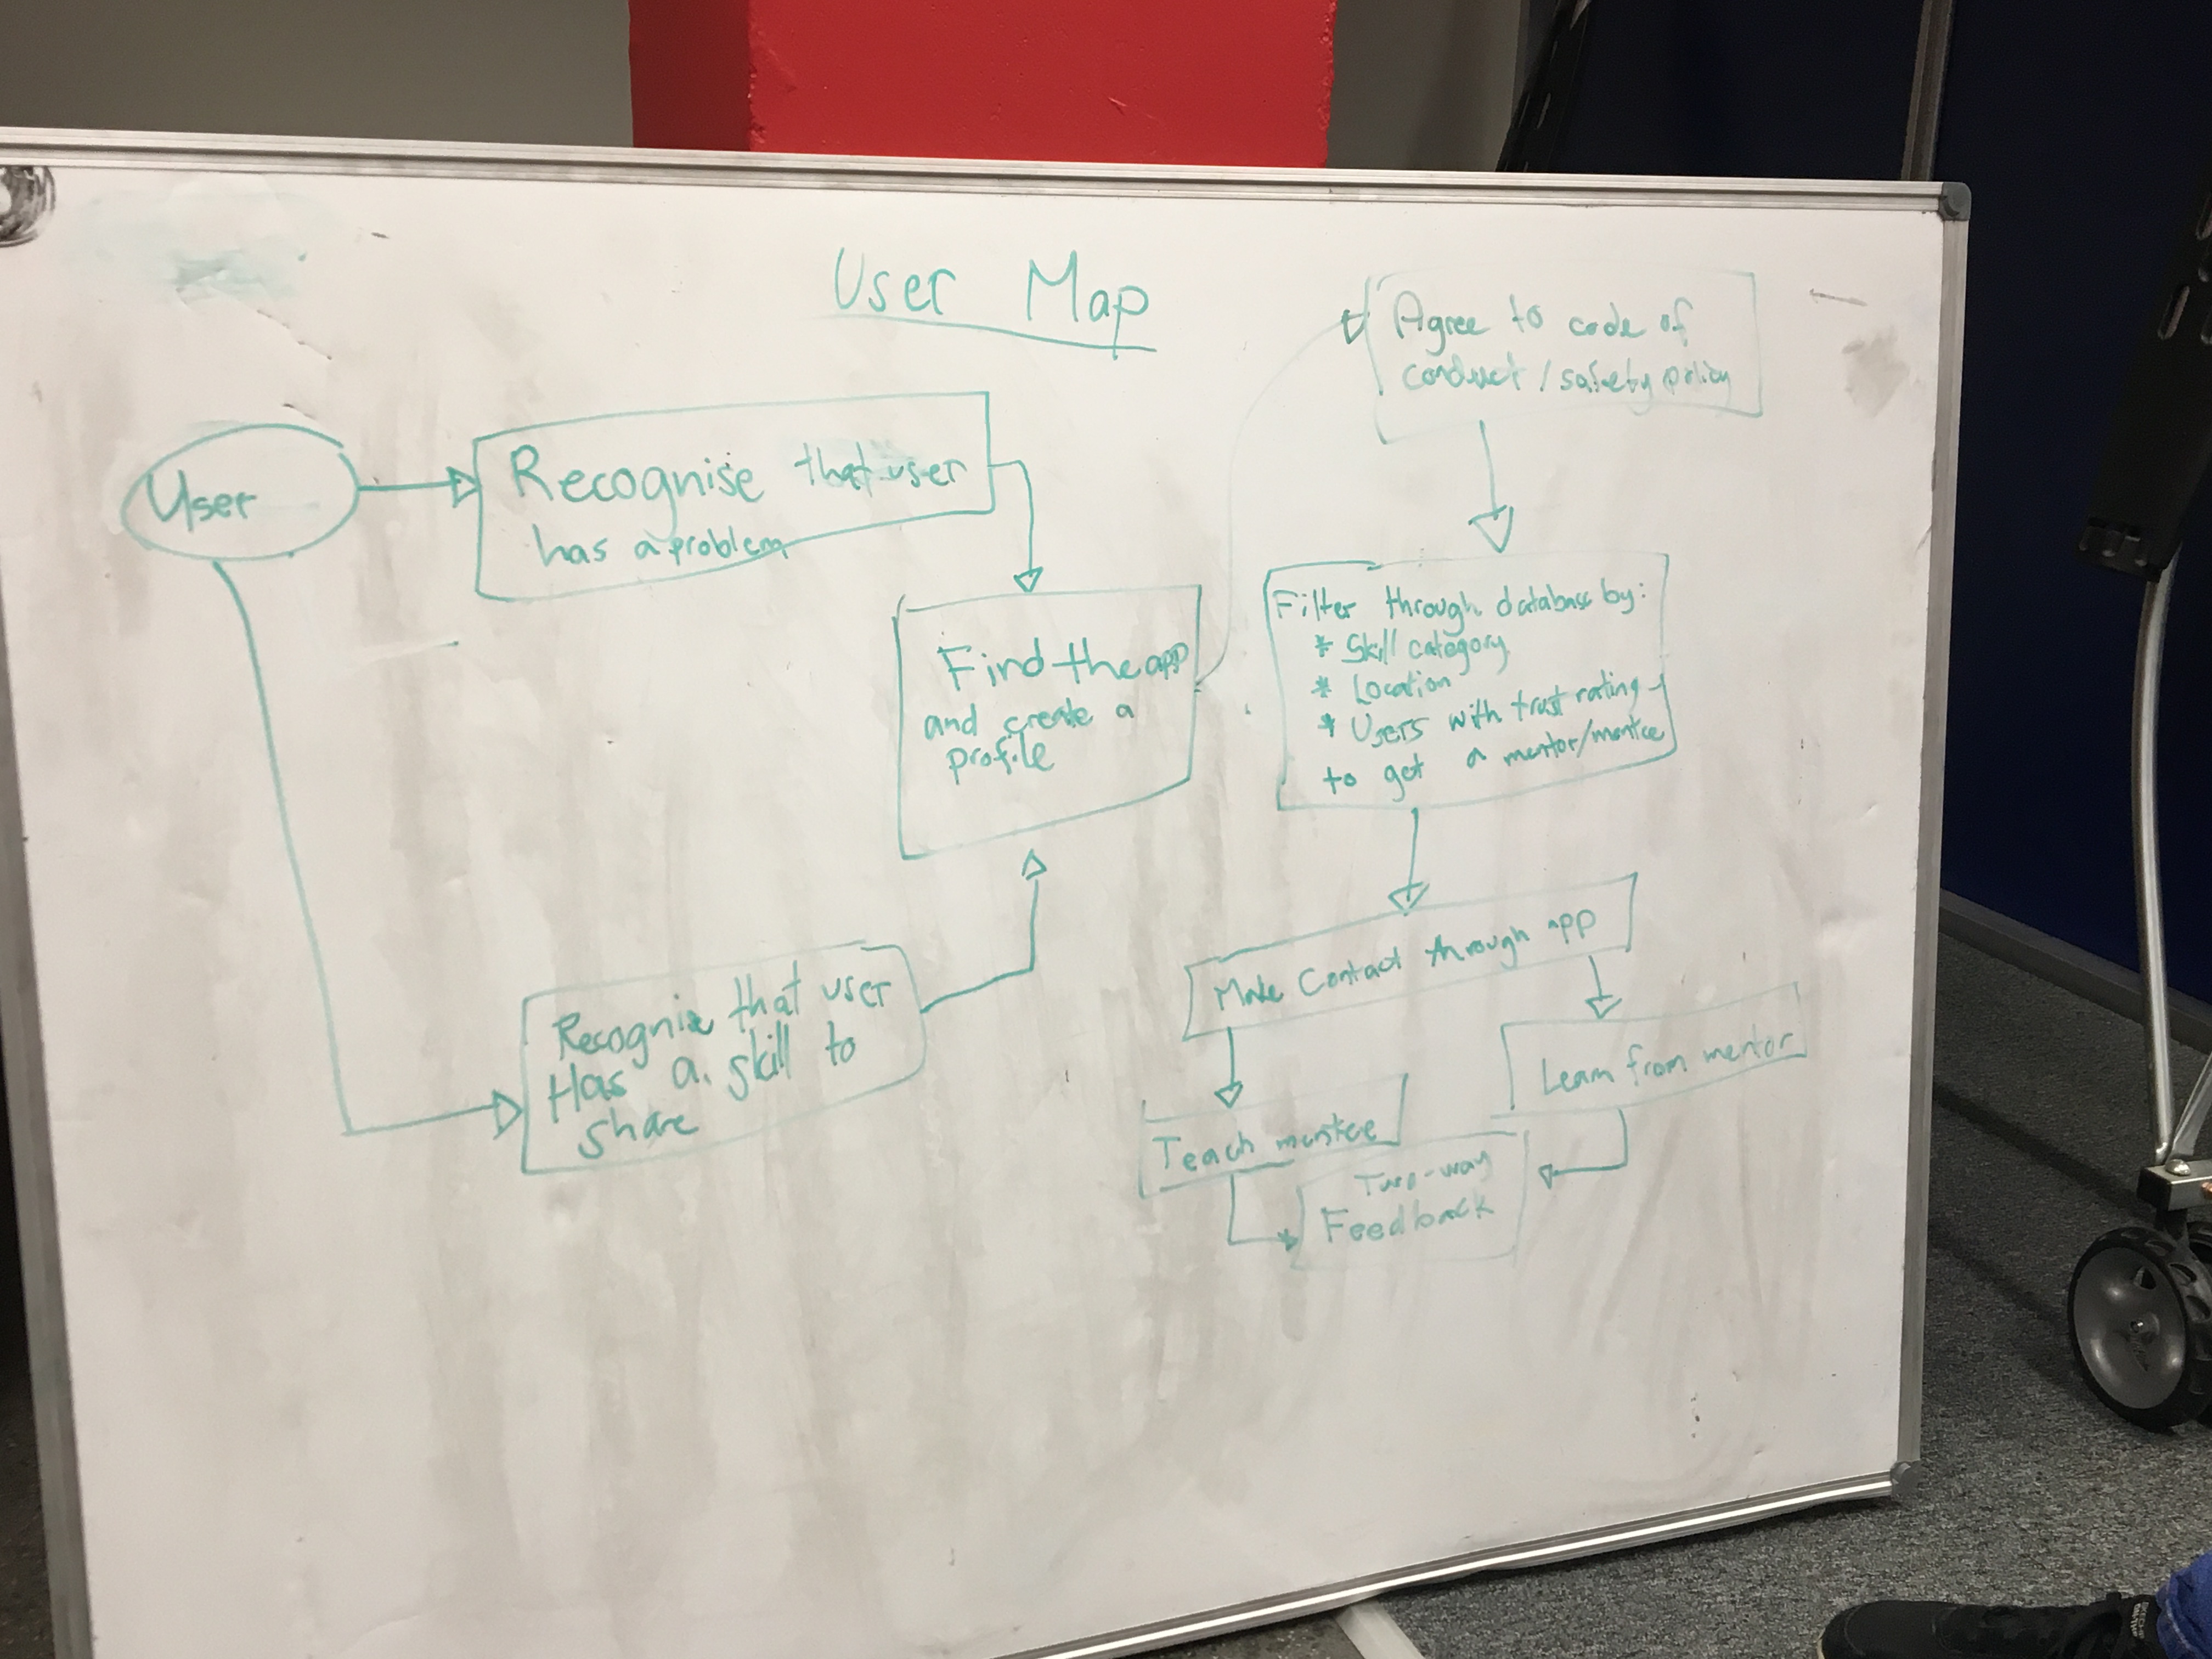 User Map
User
Recognise that user
has a problem
Find the app
and create a
profile
Recognise that user
Has a skill to
share
Agree to code of
conduct / safety policy
Filter through database by:
* Skill category
* Location
* Users with trust rating
to get a mentor/mentee
Make Contact through app
Teach mentee
Learn from mentor
Two-way
Feedback